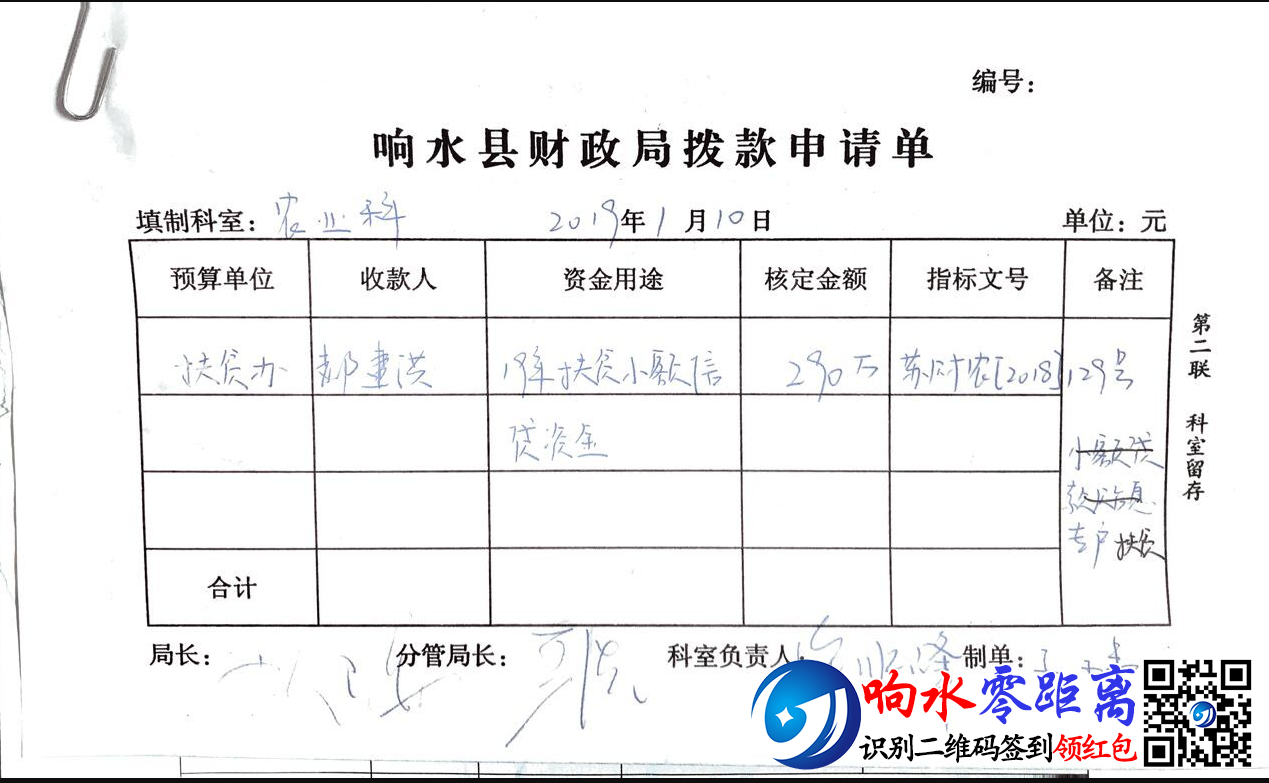 编号：
响水县财政局拨款申请单
填制科室：农业科 2019年1月10日 单位：元
预算单位 收款人 资金用途 核定金额 指标文号 备注
扶贫办 建洪 19年扶贫小额信 290万 苏财农[2018]129号
贷资金
小额贷
款贴息
专户 扶贫
合计
第二联 科室留存
局长： 分管局长： 科室负责人： 制单：
响水零距离
识别二维码签到领红包